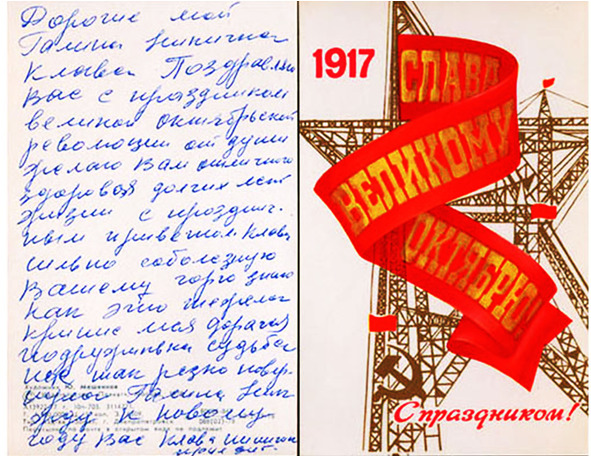 Дорогие мои
Галина Никитична
Клава Поздравляю
Вас с праздником
великой октябрьской
революции от души
желаю Вам отличного
здоровья долгих лет
жизни с празднич-
ным приветом Клава
сильно соболезную
Вашему горю знаю
как это тяжело
крепись моя дорогая
подруженька судьба
так резко
Галина Ник
жду к новому
году Вас Клава пишите
Художник Ю.
1917
СЛАВА
ВЕЛИКОМУ
ОКТЯБРЮ!
С праздником!